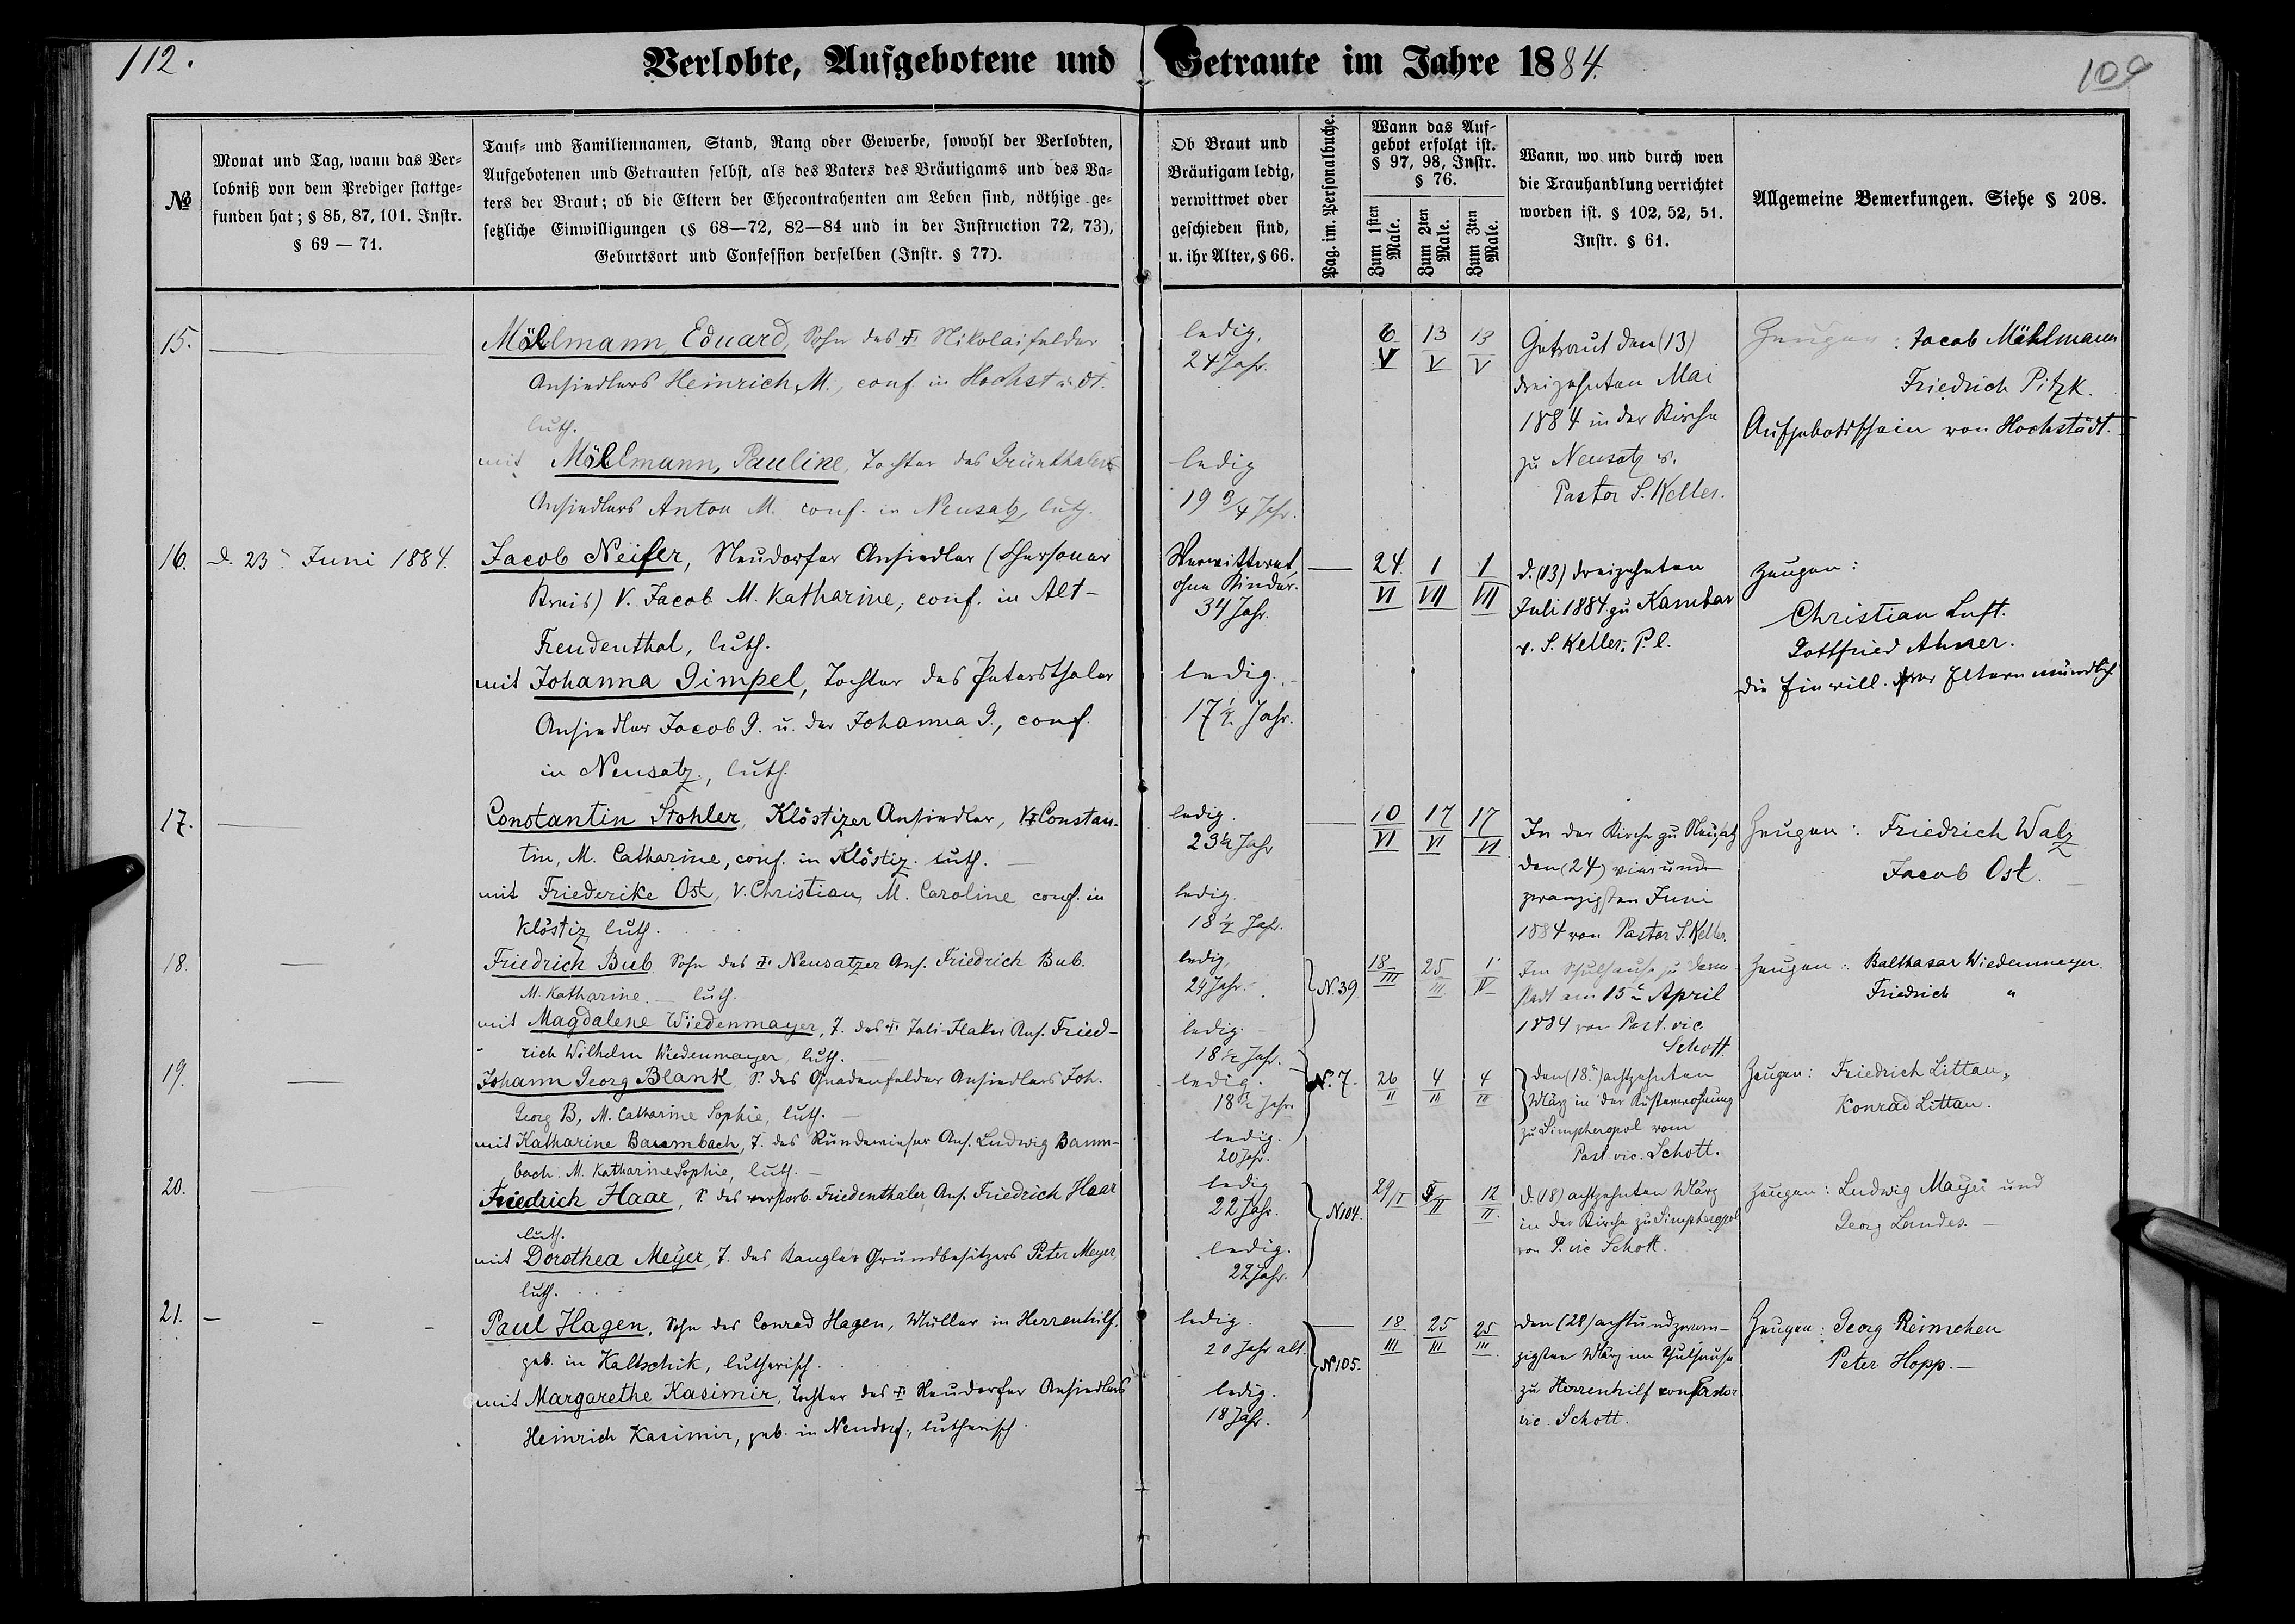 112.
Verlobte, Aufgebotene und Getraute im Jahre 1884.
109
№
Monat und Tag, wann das Ver-
lobniß von dem Prediger stattge-
funden hat; § 85, 87, 101. Instr.
§ 69 — 71.
Tauf- und Familiennamen, Stand, Rang oder Gewerbe, sowohl der Verlobten,
Aufgebotenen und Getrauten selbst, als des Vaters des Bräutigams und des Va-
ters der Braut; ob die Eltern der Ehecontrahenten am Leben sind, nöthige ge-
setzliche Einwilligungen (§ 68—72, 82—84 und in der Instruction 72, 73),
Geburtsort und Confession derselben (Instr. § 77).
Ob Braut und
Bräutigam ledig,
verwittwet oder
geschieden sind,
u. ihr Alter, § 66.
Pag. im. Personalbuche.
Wann das Auf-
gebot erfolgt ist.
§ 97, 98, Instr.
§ 76.
Zum 1sten Male.
Zum 2ten Male.
Zum 3ten Male.
Wann, wo und durch wen
die Trauhandlung verrichtet
worden ist. § 102, 52, 51.
Instr. § 61.
Allgemeine Bemerkungen. Siehe § 208.
15.
Mählmann, Eduard, Sohn des Nikolaifelder
Ansiedlers Heinrich M., conf. in Hochstädt.
luth.
mit Mählmann, Pauline, Tochter des Grünthaler
Ansiedlers Anton M. conf. in Neusatz, luth.
ledig,
24 Jahr.
ledig
19 3/4 Jahr.
6/V 13/V 13/V
Getraut den (13)
dreizehnten Mai
1884 in der Kirche
zu Neusatz v.
Pastor S. Keller.
Zeugen: Jacob Mählmann
Friedrich Pitzk.
Aufgebotsschein von Hochstädt.
16. d. 23. Juni 1884.
Jacob Neifer, Neudorfer Ansiedler (Chersoner
Kreis) V. Jacob M. Katharine, conf. in Alt-
Freudenthal, luth.
mit Johanna Gimpel, Tochter des Petersthaler
Ansiedler Jacob G. u. der Johanna G., conf.
in Neusatz., luth.
Verwittwet,
ohne Kinder.
34 Jahr.
ledig.
17 1/2 Jahr.
24/VI 1/VII 1/VII
d. (13) dreizehnten
Juli 1884 zu Kambar
v. S. Keller, P. l.
Zeugen:
Christian Luft.
Gottfried Ahner.
die Einwill. der Eltern mündlich.
17.
Constantin Stohler, Klöstizer Ansiedler, V. Constan-
tin, M. Catharine, conf. in Klöstiz. luth.
mit Friederike Ost, V. Christian, M. Caroline conf. in
Klöstiz, luth.
ledig.
23 1/2 Jahr
ledig.
18 1/2 Jahr.
10/VI 17/VI 17/VI
In der Kirche zu Neusatz
den (24) vierund-
zwanzigsten Juni
1884 von Pastor S. Keller.
Zeugen: Friedrich Walz
Jacob Ost.
18.
Friedrich Bub. Sohn des Neusatzer Ans. Friedrich Bub.
M. Katharine. — luth.
mit Magdalene Wiedenmayer, T. des Juli-Ilaker Ans. Fried-
rich Wilhelm Wiedenmayer, luth.
ledig.
24 Jahr.
ledig.
18 1/2 Jahr.
N. 39
18/III 25/III 1/IV
Im Schulhause zu Darm-
stadt am 15. April
1884 von Past. vic.
Schott.
Zeugen: Balthasar Wiedenmeyer.
Friedrich "
19.
Johann Georg Blank, S. des Gnadenfelder Ansiedlers Joh.
Georg B, M. Catharine Sophie, luth.
mit Katharine Baumbach, T. des Rundewieser Ans. Ludwig Baum-
bach. M. Katharine Sophie, luth.
ledig.
18 1/2 Jahr.
ledig.
20 Jahr.
N. 7.
26/II 4/III 4/III
den (18.) achtzehnten
März in der Küsterwohnung
zu Simpheropol vom
Past. vic. Schott.
Zeugen: Friedrich Littau,
Konrad Littau.
20.
Friedrich Haar, S. des verstorb. Friedenthaler Ans. Friedrich Haar
luth.
mit Dorothea Meyer, T. des Kangler Grundbesitzers Peter Meyer,
luth.
ledig
22 Jahr.
ledig.
22 Jahr.
N 104.
29/I 5/II 12/II.
d. (18) achtzehnten März
in der Kirche zu Simpheropol
von P. vic Schott.
Zeugen: Ludwig Mayer und
Georg Landes.
21.
Paul Hagen, Sohn des Conrad Hagen, Müller in Herrenhilf.
geb. in Kaltschik, lutherisch.
mit Margarethe Kasimir, Tochter des Neudorfer Ansiedlers
Heinrich Kasimir, geb. in Neudorf., lutherisch.
ledig.
20 Jahr alt.
ledig.
18 Jahr.
N 105.
18/III 25/III 25/III.
den (28) achtundzwan-
zigsten März im Schulhause
zu Herrenhilf von Pastor
vic. Schott.
Zeugen: Georg Reimchen
Peter Hopp.